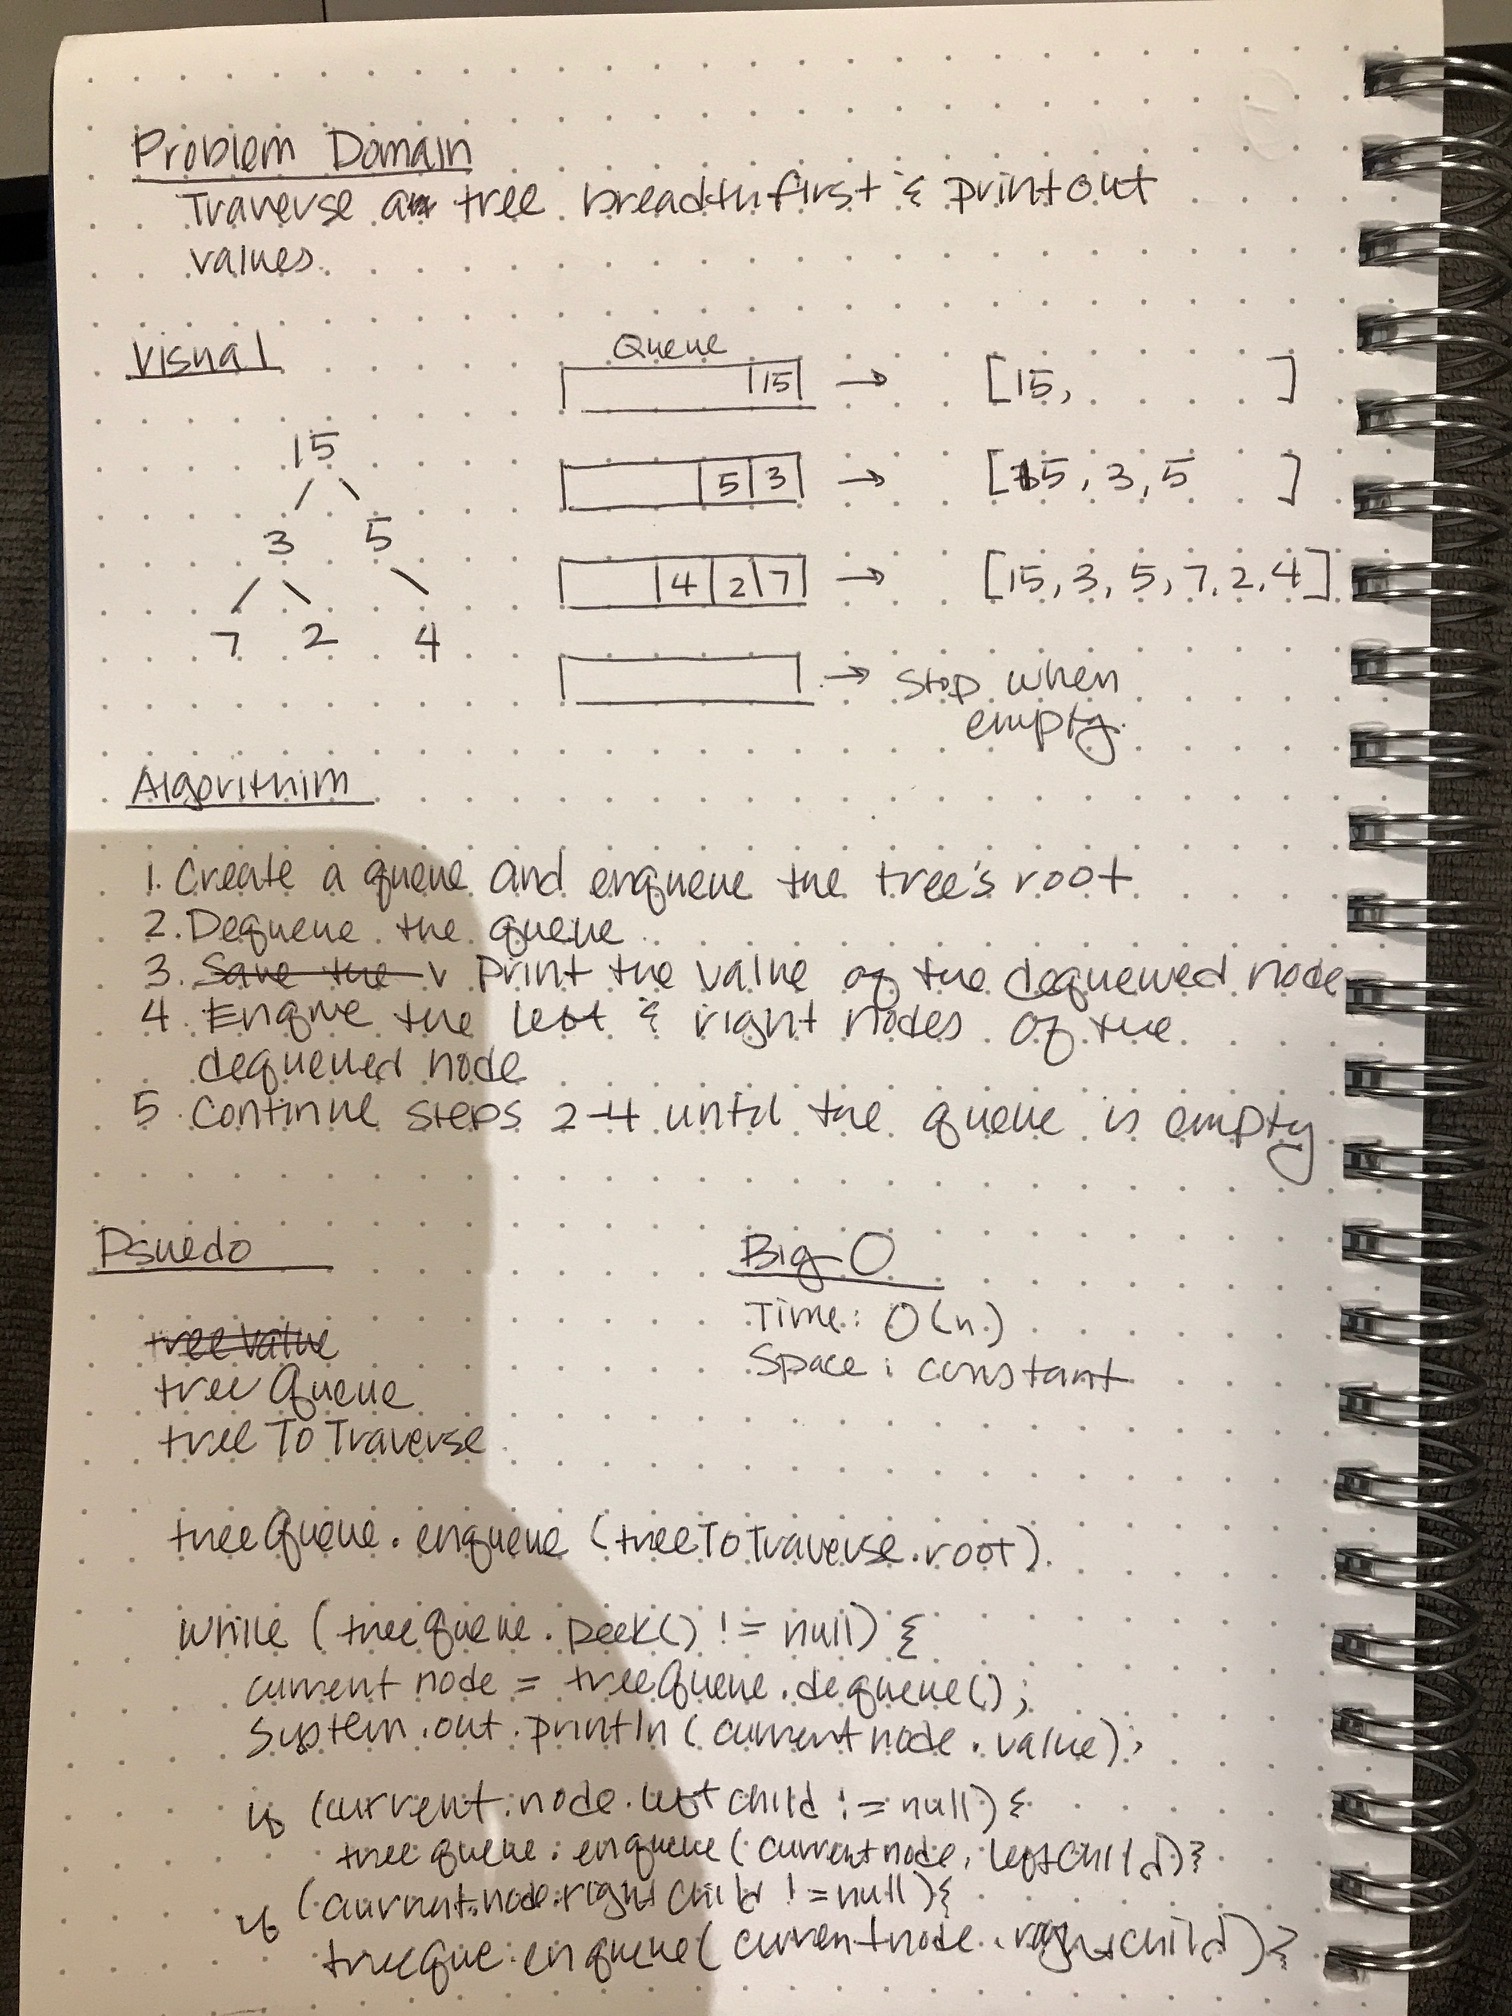 Problem Domain
Traverse a tree breadth first & print out
values.
Visual
Queue
15 → [15, ]
5 3 → [15, 3, 5 ]
4 2 7 → [15, 3, 5, 7, 2, 4]
→ Stop when
empty.
15
3 5
7 2 4
Algorithim
1. Create a queue and enqueue the tree's root
2. Dequeue the queue
3. Save the v Print the value of the dequeued node
4. Enque the left & right nodes of the
dequeued node
5. Continue steps 2-4 until the queue is empty
Psuedo
tree value
tree Queue
tree To Traverse
Big O
Time: O(n)
Space: constant
treeQueue.enqueue (treeToTraverse.root)
while (treequeue.peek() != null) {
current node = treeQueue.dequeue();
System.out.println(current node.value);
if (current.node.left child != null) {
tree queue.enqueue(current node.leftChild)}
if (current.node.right child != null){
treeque.enqueue(current node.rightchild)}